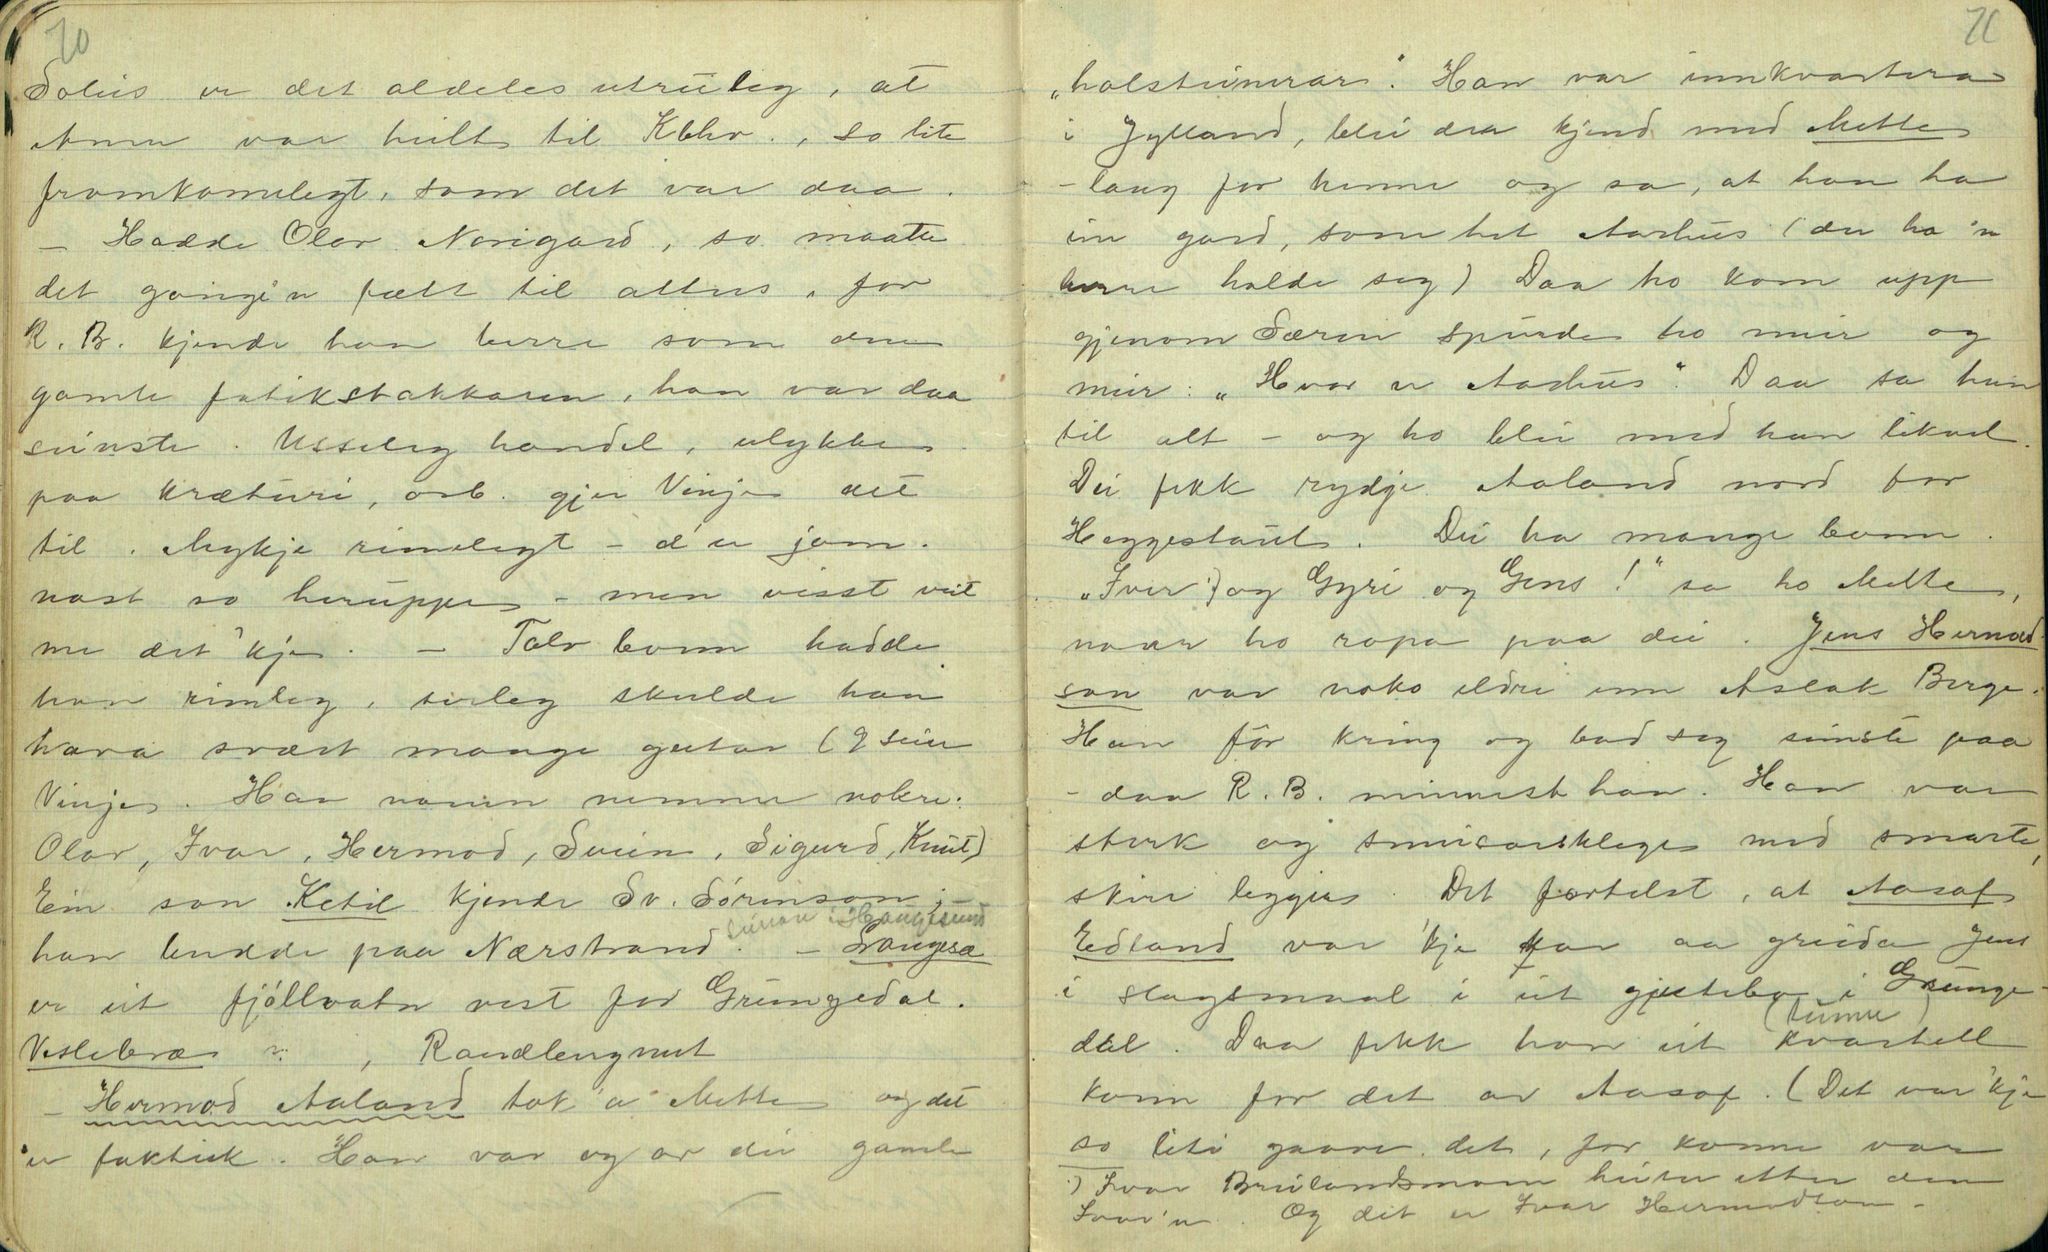 70
Soleis er det aldeles utruleg, at
Anne var heilt til Kbhv., so lite
framkomelegt, som det var daa.
— Hadde Olav Norigard, so maatte
det gongi'n fætt til atters, for
R. B. kjende han berre som den
gamle fatikstakkaren, han var daa
seinste. Usseleg handel, ulykke
paa kræturi, osb. gjer Vinje det
til. Mykje rimelegt – d'er jam-
nast so heruppe – men visst veit
me det 'kje. — Talv bonn hadde
han rimeleg, serleg skulde han
hava svært mange gutar (9 seier
Vinje. Han naun nemner nokre:
Olav, Ivar, Hermod, Svein, Sigurd, Knut)
Ein son Ketil kjende Sv. Sórinson;
seinare i Haugesund
han budde paa Nærstrand. — Langesæ
er eit fjóllvatn vest for Grungedal.
Veslebræ " , Randbergnut
— Hermod Aaland tok 'a Mette og det
'er faktisk. Han var og av dei gamle
71
„holsteinerar". Han var innkvartera
i Jylland, blei daa kjend med Mette
– laug for henne og sa, at han ha
ein gard, som het Aarhus (der ha 'n
berre halde seg) Daa ho kom upp
gjenom Særen spurde ho meir og
meir: „Hvor er Aarhus". Daa sa han
til alt – og ho blei med han likevel.
Dei fekk rydje Aaland nord for
Heggestaul. Dei ha mange bonn.
„Iver ¹) og Gyri og Gens!" sa ho Mette,
naar ho ropa paa dei. Jens Hermod-
son var noko eldre enn Aslak Berge.
Han fór kring og bad seg seinste paa
– daa R. B. minnest han. Han var
sterk og smidig med smarte,
skire leggjer. Det fortelst, at Aasof
Edland var 'kje kar aa greida Jens
i slagsmaal i eit gjestebo i Grunge-
(tunne)
dal. Daa fekk han eit kvartell
konn for det av Aasof. (Det var 'kje
so liti gaave det, for konne var
¹) Ivar Breilandsmoen heiter etter den
Ivar'n. Og det er Ivar Hermodson.